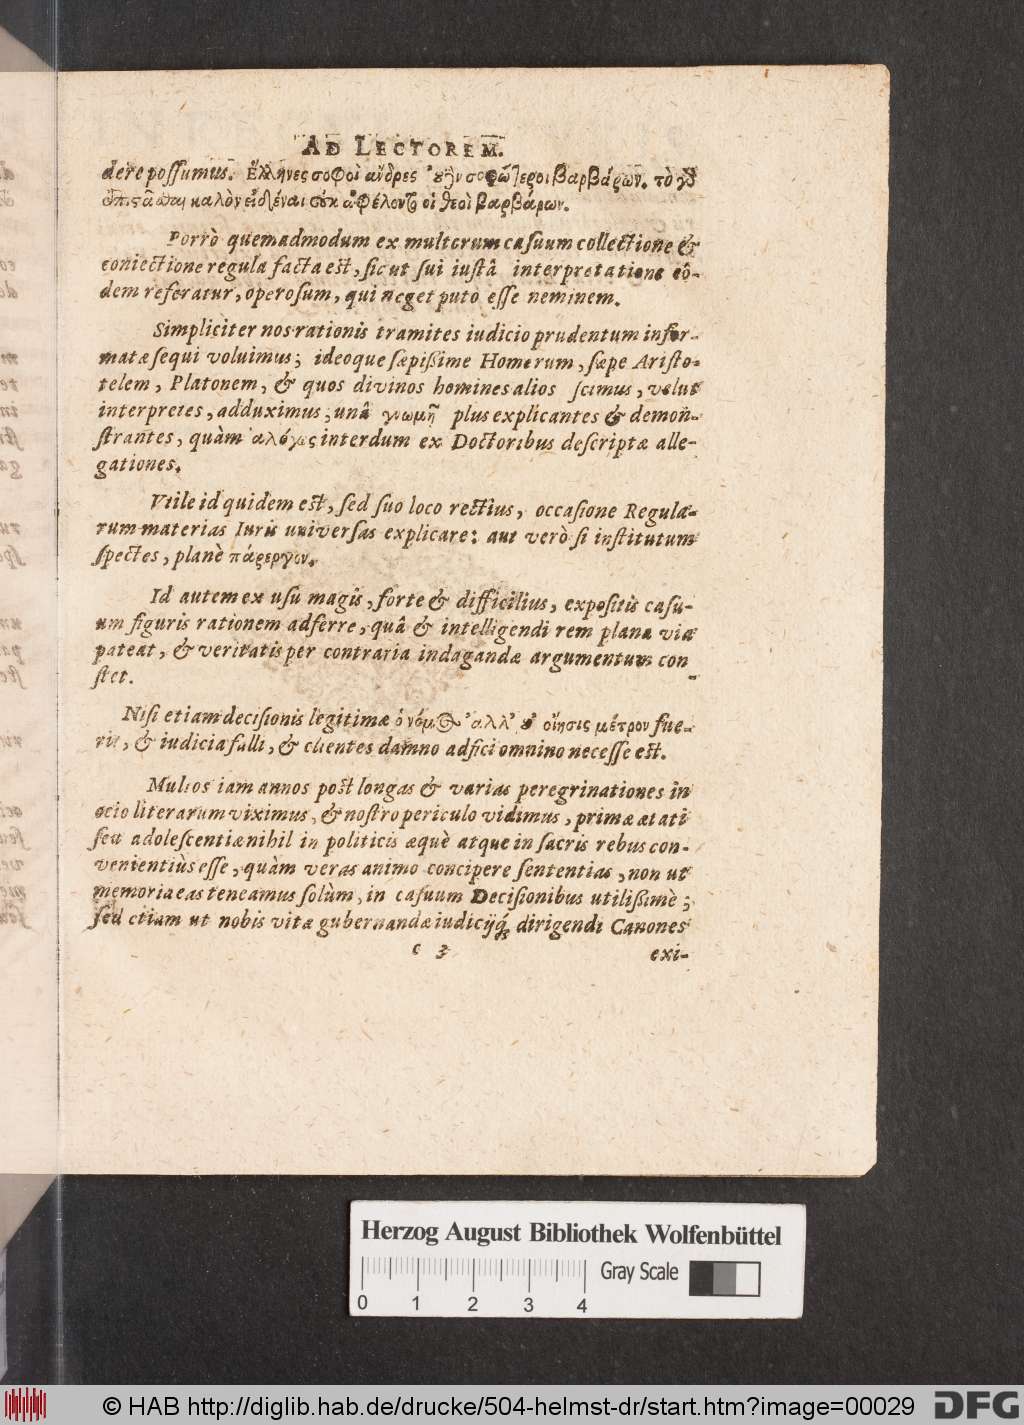 AD LECTOREM.
dere possumus. Ἕλληνες σοφοὶ ἄνδρες σοφώτεροι βαρβάρων. τὸ
καλὸν εἰδέναι οὐκ ἀφέλοντο οἱ θεοὶ βαρβάρων.
Porrò quemadmodum ex multorum casuum collectione &
coniectione regula facta est, sic ut sui iustâ interpretatione eô-
dem referatur, operosum, qui neget puto esse neminem.
Simpliciter nos rationis tramites iudicio prudentum infor-
matæ sequi voluimus; ideoque sæpißime Homerum, sæpe Aristo-
telem, Platonem, & quos divinos homines alios scimus, velut
interpretes, adduximus, unâ γνωμῇ plus explicantes & demon-
strantes, quàm ἀλόγως interdum ex Doctoribus descriptæ alle-
gationes.
Vtile id quidem est, sed suo loco rectius, occasione Regula-
rum materias Iuris universas explicare: aut verò si institutum
spectes, planè πάρεργον.
Id autem ex usu magis, forte & difficilius, expositis casu-
um figuris rationem adferre, quâ & intelligendi rem plana via
pateat, & veritatis per contraria indagandæ argumentum con
stet.
Nisi etiam decisionis legitimæ ὁ νόμος ἀλλ' οὐ οἴησις μέτρον fue-
rit, & iudicia falli, & clientes damno adfici omnino necesse est.
Multos iam annos post longas & varias peregrinationes in
ocio literarum viximus, & nostro periculo vidimus, primæ ætati
seu adolescentiæ nihil in politicis æquè atque in sacris rebus con-
venientiùs esse, quàm veras animo concipere sententias, non ut
memoria eas teneamus solùm, in casuum Decisionibus utilißimè;
sed etiam ut nobis vitæ gubernandæ iudicijq́; dirigendi Canones
c 3
exi-
Herzog August Bibliothek Wolfenbüttel
Gray Scale
0 1 2 3 4
© HAB http://diglib.hab.de/drucke/504-helmst-dr/start.htm?image=00029
DFG